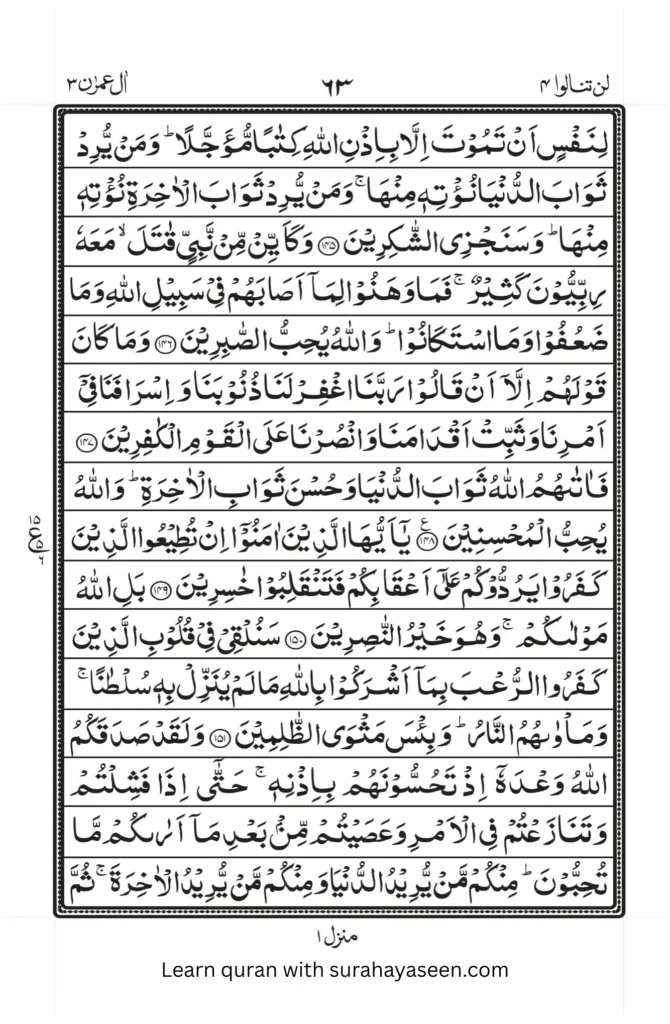 لن تنالوا ۴ ۶۳ اٰل عمرٰن ۳
لِنَفْسٍ اَنْ تَمُوْتَ اِلَّا بِاِذْنِ اللّٰهِ كِتٰبًا مُّؤَجَّلًا ؕ وَمَنْ يُّرِدْ
ثَوَابَ الدُّنْيَا نُؤْتِهٖ مِنْهَا ۚ وَمَنْ يُّرِدْ ثَوَابَ الْاٰخِرَةِ نُؤْتِهٖ
مِنْهَا ؕ وَسَنَجْزِى الشّٰكِرِيْنَ ۝۱۴۵ وَكَاَيِّنْ مِّنْ نَّبِيٍّ قٰتَلَ ۙ مَعَهٗ
رِبِّيُّوْنَ كَثِيْرٌ ۚ فَمَا وَهَنُوْا لِمَاۤ اَصَابَهُمْ فِيْ سَبِيْلِ اللّٰهِ وَمَا
ضَعُفُوْا وَمَا اسْتَكَانُوْا ؕ وَاللّٰهُ يُحِبُّ الصّٰبِرِيْنَ ۝۱۴۶ وَمَا كَانَ
قَوْلَهُمْ اِلَّاۤ اَنْ قَالُوْا رَبَّنَا اغْفِرْ لَنَا ذُنُوْبَنَا وَاِسْرَافَنَا فِيْۤ
اَمْرِنَا وَثَبِّتْ اَقْدَامَنَا وَانْصُرْنَا عَلَى الْقَوْمِ الْكٰفِرِيْنَ ۝۱۴۷
فَاٰتٰىهُمُ اللّٰهُ ثَوَابَ الدُّنْيَا وَحُسْنَ ثَوَابِ الْاٰخِرَةِ ؕ وَاللّٰهُ
يُحِبُّ الْمُحْسِنِيْنَ ۝۱۴۸ع يٰۤاَيُّهَا الَّذِيْنَ اٰمَنُوْۤا اِنْ تُطِيْعُوا الَّذِيْنَ
كَفَرُوْا يَرُدُّوْكُمْ عَلٰۤى اَعْقَابِكُمْ فَتَنْقَلِبُوْا خٰسِرِيْنَ ۝۱۴۹ بَلِ اللّٰهُ
مَوْلٰىكُمْ ۚ وَهُوَ خَيْرُ النّٰصِرِيْنَ ۝۱۵۰ سَنُلْقِيْ فِيْ قُلُوْبِ الَّذِيْنَ
كَفَرُوا الرُّعْبَ بِمَاۤ اَشْرَكُوْا بِاللّٰهِ مَا لَمْ يُنَزِّلْ بِهٖ سُلْطٰنًا ۚ
وَمَاْوٰىهُمُ النَّارُ ؕ وَبِئْسَ مَثْوَى الظّٰلِمِيْنَ ۝۱۵۱ وَلَقَدْ صَدَقَكُمُ
اللّٰهُ وَعْدَهٗۤ اِذْ تَحُسُّوْنَهُمْ بِاِذْنِهٖ ۚ حَتّٰۤى اِذَا فَشِلْتُمْ
وَتَنَازَعْتُمْ فِي الْاَمْرِ وَعَصَيْتُمْ مِّنْۢ بَعْدِ مَاۤ اَرٰىكُمْ مَّا
تُحِبُّوْنَ ؕ مِنْكُمْ مَّنْ يُّرِيْدُ الدُّنْيَا وَمِنْكُمْ مَّنْ يُّرِيْدُ الْاٰخِرَةَ ۚ ثُمَّ
منزل ۱
Learn quran with surahayaseen.com